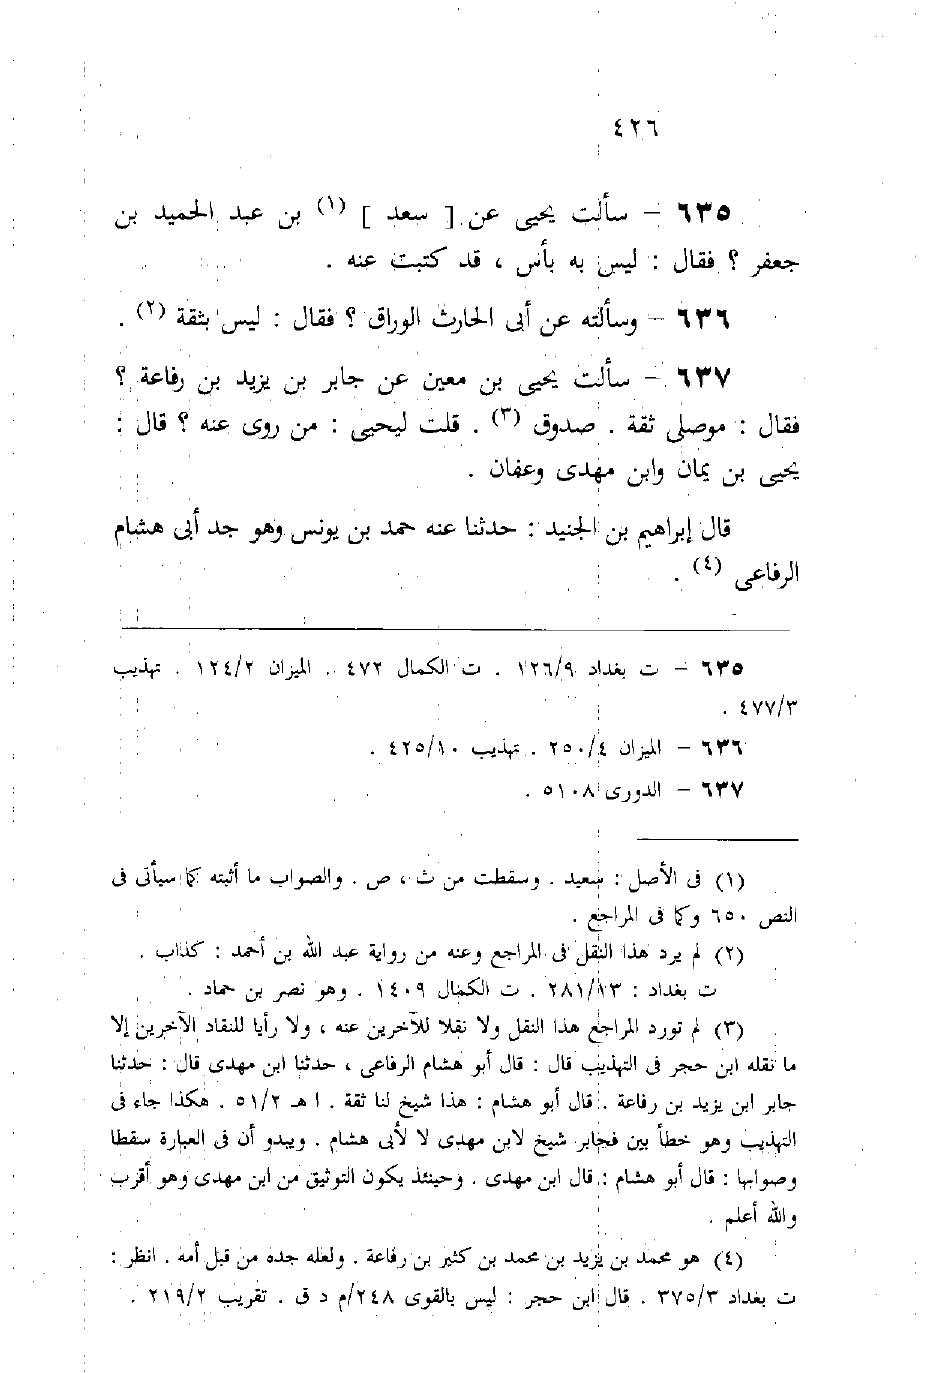 ٤٢٦
٦٣٥ – سألت يحيى عن [ سعد ] (١) بن عبد الحميد بن
جعفر ؟ فقال : ليس به بأس ، قد كتبت عنه .
٦٣٦ – وسألته عن أبى الحارث الوراق ؟ فقال : ليس بثقة (٢) .
٦٣٧ – سألت يحيى بن معين عن جابر بن يزيد بن رفاعة ؟
فقال : موصلى ثقة . صدوق (٣) . قلت ليحيى : من روى عنه ؟ قال :
يحيى بن يمان وابن مهدى وعفان .
قال إبراهيم بن الجنيد : حدثنا عنه حمد بن يونس وهو جد أبى هشام
الرفاعى (٤) .
٦٣٥ – ت بغداد ١٢٦/٩ . ت الكمال ٤٧٢ . الميزان ١٢٤/٢ . تهذيب
٤٧٧/٣ .
٦٣٦ – الميزان ٢٥٠/٤ . تهذيب ٤٢٥/١٠ .
٦٣٧ – الدورى ٥١٠٨ .
(١) فى الأصل : سعيد . وسقطت من ث ، ص . والصواب ما أثبته كما سيأتى فى
النص ٦٥٠ وكما فى المراجع .
(٢) لم يرد هذا النقل فى المراجع وعنه من رواية عبد الله بن أحمد : كذاب .
ت بغداد : ٢٨١/١٣ . ت الكمال ١٤٠٩ . وهو نصر بن حماد .
(٣) لم تورد المراجع هذا النقل ولا نقلا للآخرين عنه ، ولا رأيا للنقاد الآخرين إلا
ما نقله ابن حجر فى التهذيب قال : قال أبو هشام الرفاعى ، حدثنا ابن مهدى قال : حدثنا
جابر ابن يزيد بن رفاعة . قال أبو هشام : هذا شيخ لنا ثقة . ا هـ ٥١/٢ . هكذا جاء فى
التهذيب وهو خطأ بين فجابر شيخ لابن مهدى لا لأبى هشام . ويبدو أن فى العبارة سقطا
وصوابها : قال أبو هشام : قال ابن مهدى . وحينئذ يكون التوثيق من ابن مهدى وهو أقرب
والله أعلم .
(٤) هو محمد بن يزيد بن محمد بن كثير بن رفاعة . ولعله جده من قبل أمه . انظر :
ت بغداد ٣٧٥/٣ . قال ابن حجر : ليس بالقوى ٢٤٨/م د ق . تقريب ٢١٩/٢ .